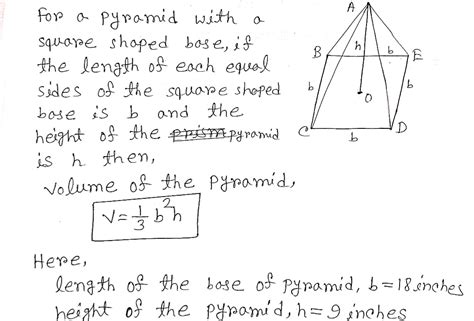 for a pyramid with a
square shaped base, if
the length of each equal
sides of the square shaped
base is b and the
height of the prism pyramid
is h then,
volume of the pyramid,
V = 1/3 b²h
Here,
length of the base of pyramid, b = 18 inches
height of the pyramid, h = 9 inches
A
B
h
b
E
b
O
b
C
b
D